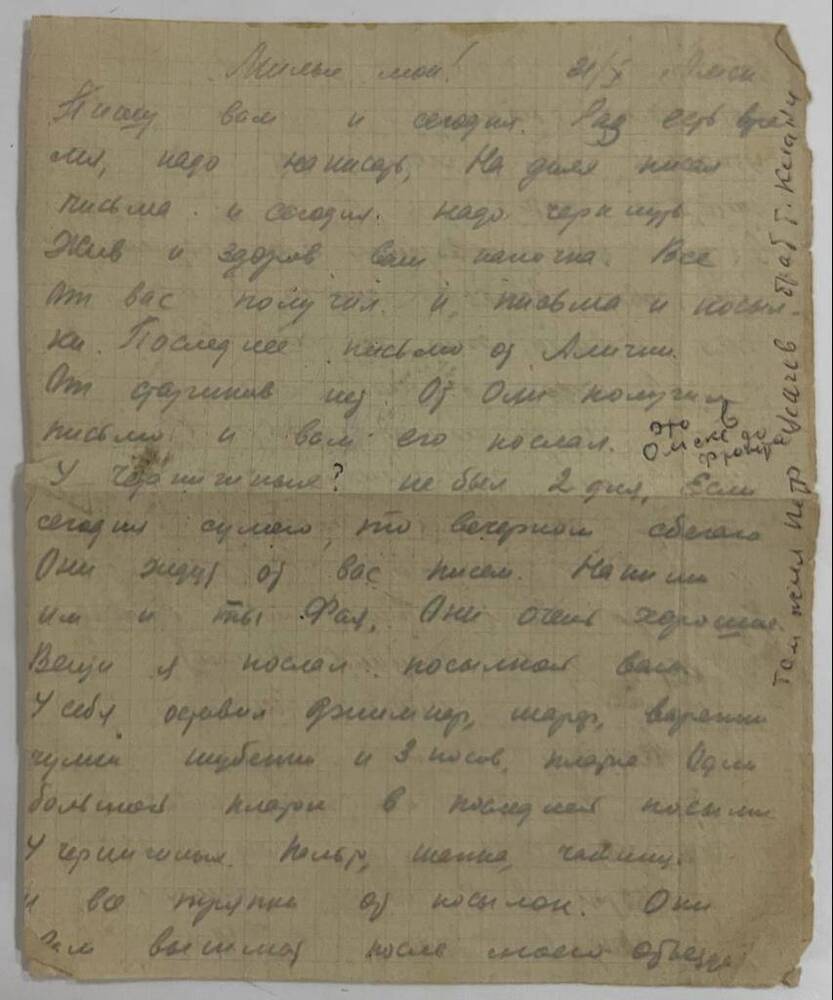 Милые мои! 21/X Омск
Пишу вам и сегодня. Раз есть вре-
мя, надо написать, На днях писал
письма и сегодня надо черкнуть
Жив и здоров ваш папочка. Все
От вас получил и письма и посыл-
ки. Последнее письмо от Алички.
От стариков нет От Оли получил
письмо и вам его послал.
это в
Омске до
фронта
У ? не был 2 дня, Если
сегодня сумею, то вечерком сбегаю
Они ждут от вас писем. Напиши
им и ты Фая, Они очень хорошие.
Вещи я послал посылкой вам
У себя оставил джемпер, шарф, варежки
чулки и 3 носов, платка Один
большой платок в последней посылке
У Пальто, шапка,
и все тряпки от посылок. Они
Вам вышлют после моего отъезда
Там жил Петр Усачев брат Г. Клани